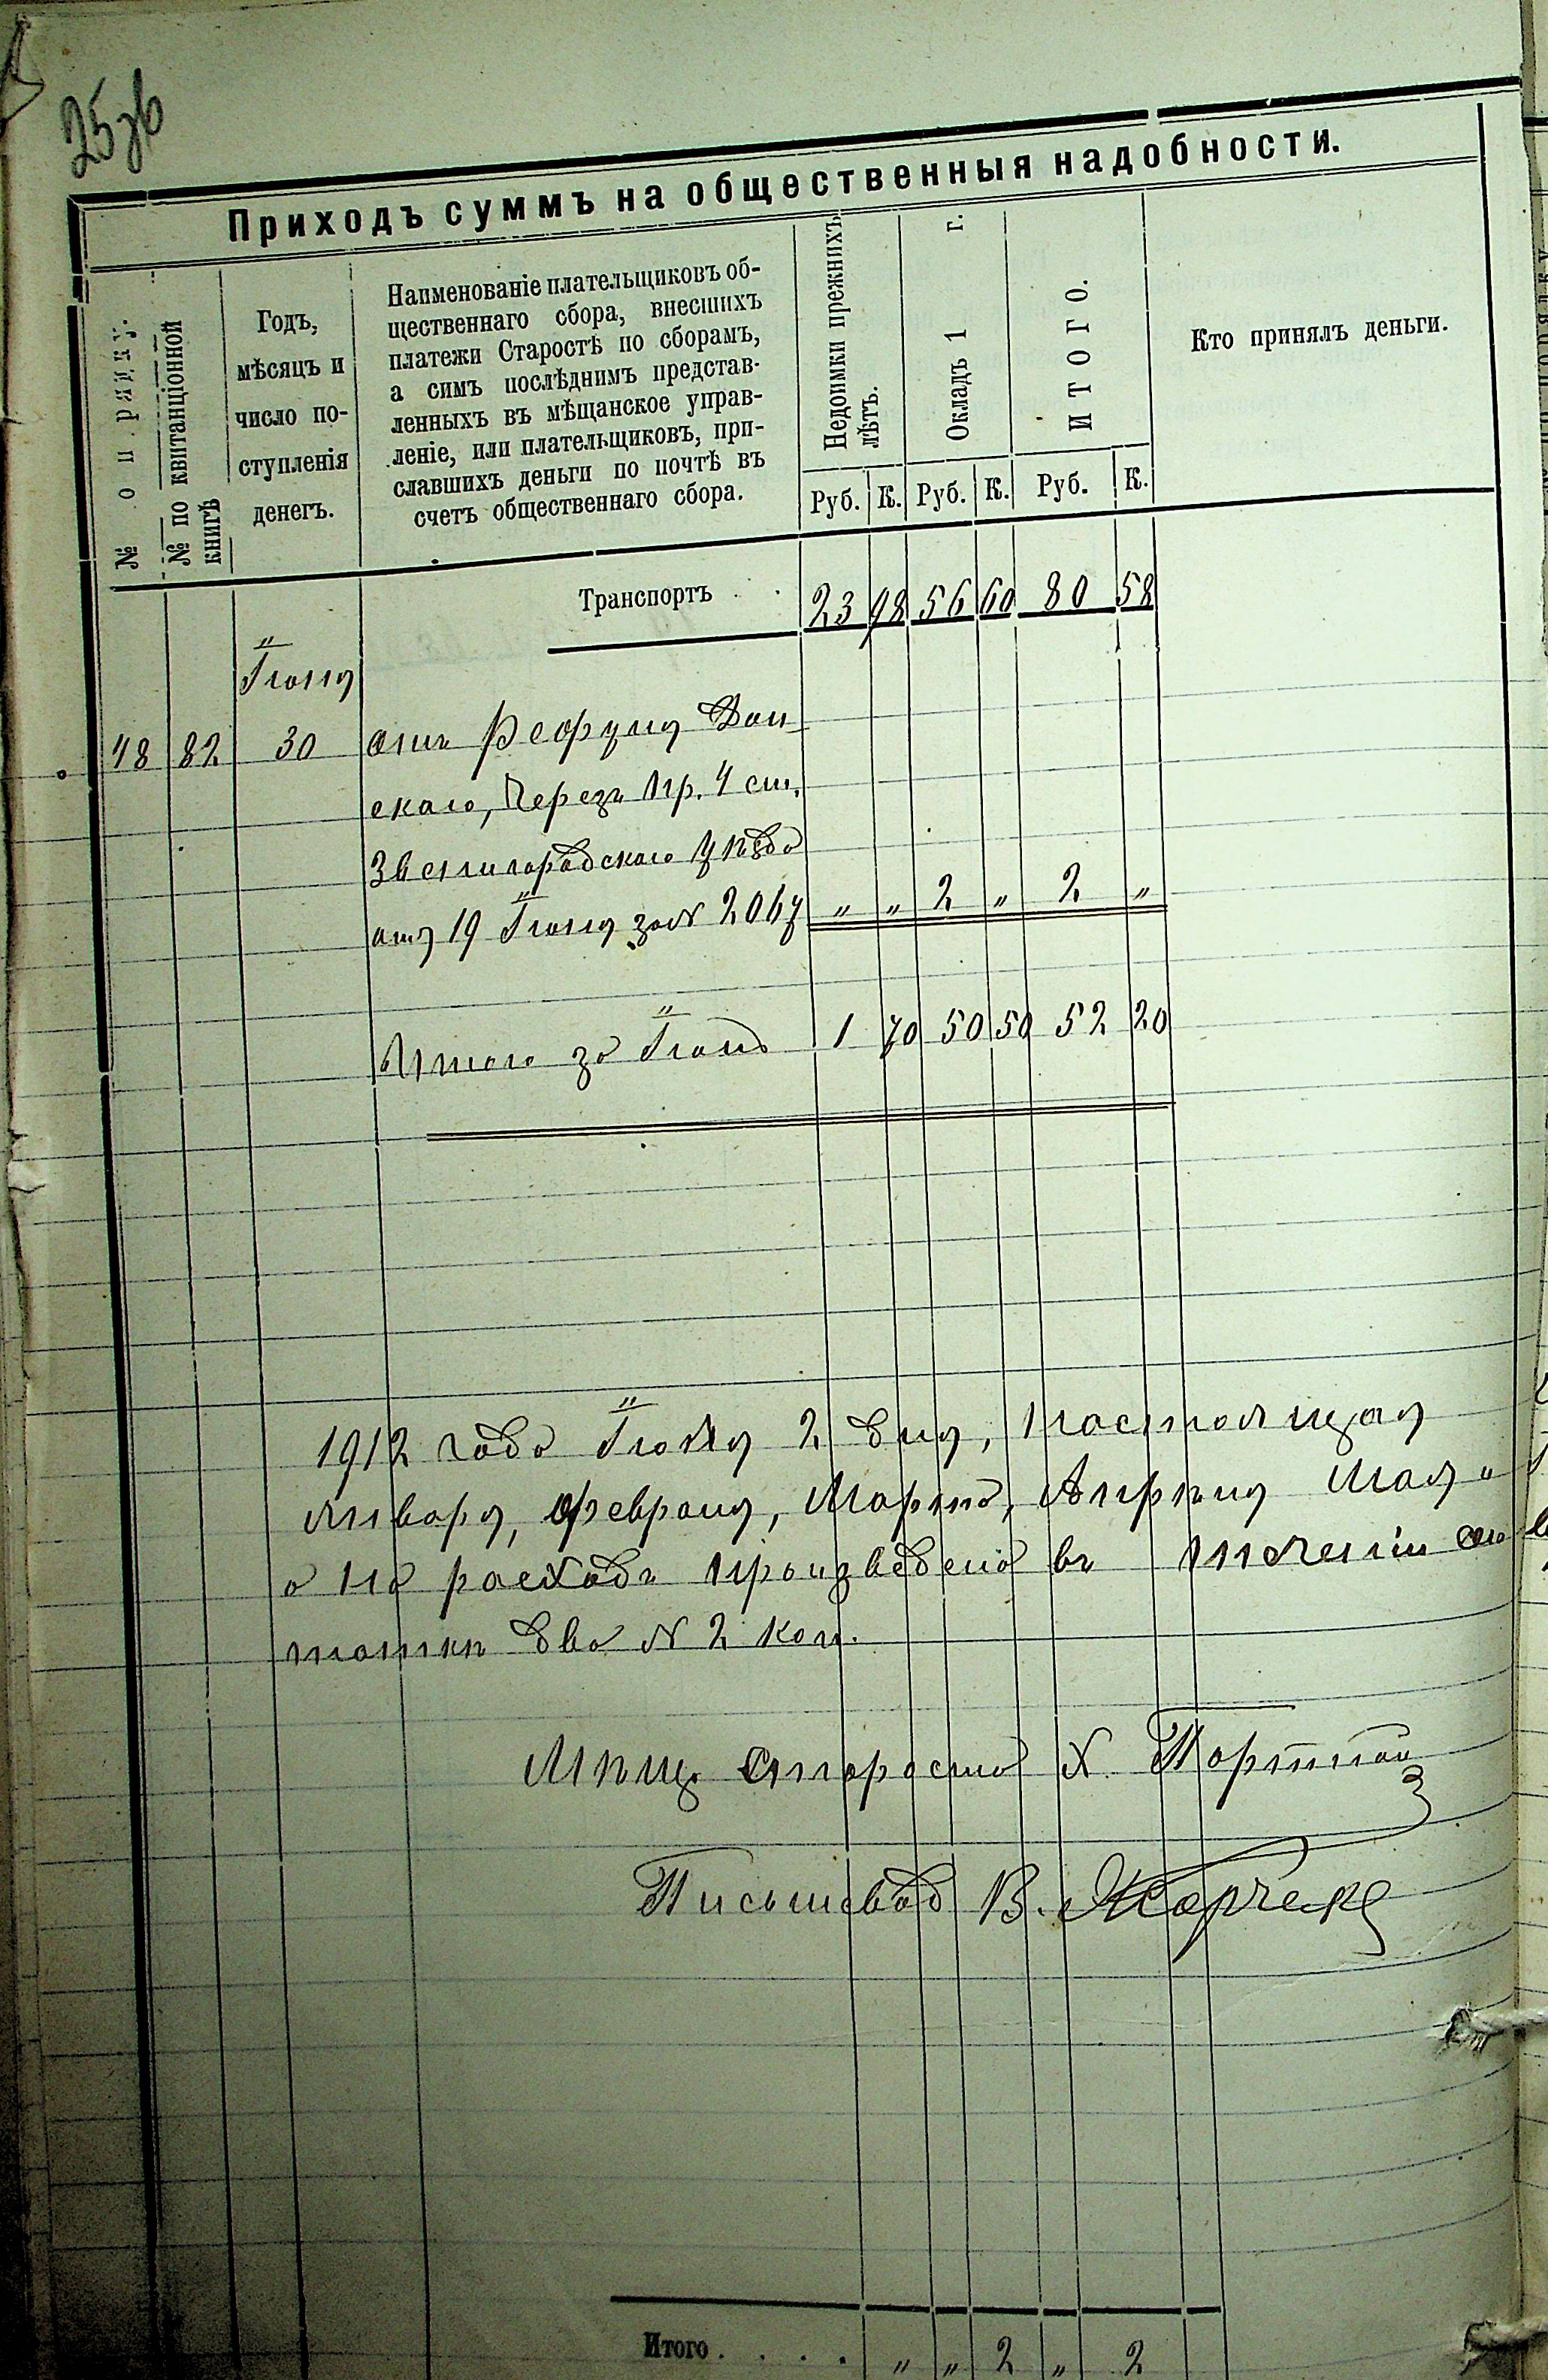 25 зв
Приходъ суммъ на общественныя надобности.
№ по рядку.
№ по квитанціонной
книгѣ
Годъ,
мѣсяцъ и
число по-
ступленія
денегъ.
Наименованіе плательщиковъ об-
щественнаго сбора, внесшихъ
платежи Старостѣ по сборамъ,
а симъ послѣднимъ представ-
ленныхъ въ мѣщанское управ-
леніе, или плательщиковъ, при-
славшихъ деньги по почтѣ въ
счетъ общественнаго сбора.
Недоимки прежнихъ
лѣтъ.
Окладъ 1 г.
ИТОГО.
Кто принялъ деньги.
Руб. К. Руб. К. Руб. К.
Транспортъ . . 23 98 56 60 80 58
Іюня
48 82 30 отъ
скаго, Черезъ Пр. 4 ст.
Звенигородскаго уѣзда
отъ 19 Іюня за № 2067 " " 2 " 2 "
Итого за Іюнь 1 70 50 50 52 20
1912 года 2 дня, настоящая
Января, Февраля, Марта, Апрѣля Мая и
а на расходъ произведена въ теченіи
два № 2 коп.
Мѣщ. Староста Х.
Письмовод В.
Итого . . . . " " 2 " 2